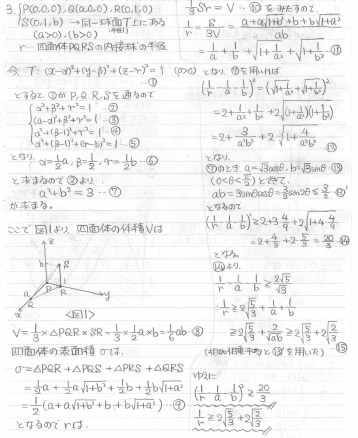 3. P(0,0,0), Q(a,0,0), R(0,1,0)
S(0,1,b) → 同一球面上にある
(a>0), (b>0) (半径1)
r … 四面体PQRSの内接球の半径
今、T: (x-α)²+(y-β)²+(z-γ)²=1
… ①
とすると①がP,Q,R,Sを通るので
α²+β²+γ²=1 … ②
(a-α)²+β²+γ²=1 … ③
α²+(β-1)²+γ²=1 … ④
α²+(β-1)²+(γ-b)²=1 … ⑤
となり、
α=1/2a, β=1/2, γ=1/2b … ⑥
と求まるので②より、
a²+b²=3 … ⑦
が求まる。
ここで図1より、四面体の体積Vは
z
b
S
P
a
Q
R
x
y
<図1>
V=1/3×△PQR×SR=1/3×1/2a×b=1/6ab … ⑧
四面体の表面積σは、
σ=△PQR+△PQS+△PRS+△QRS
=1/2a+1/2a√1+b²+1/2b+1/2b√1+a²
=1/2(a+a√1+b²+b+b√1+a²) … ⑨
となるのでrは、
1/3σr=V … ⑩をみたすので、
1/r=σ/3V=(a+a√1+b²+b+b√1+a²)/ab
=1/a+1/b+√1+1/a²+√1+1/b² … ⑪
となり、⑦を用いれば
(1/r-1/a-1/b)²=(√1+1/a²+√1+1/b²)²
=2+1/a²+1/b²+2√(1+1/a²)(1+1/b²)
=2+3/a²b²+2√1+4/a²b²
となり、
⑦のとき a=√3cosθ, b=√3sinθ … ⑬
(0<θ<π/2)とおくと、
ab=3sinθcosθ=3/2sin2θ≦3/2
となるので
(1/r-1/a-1/b)²≧2+3·4/9+2√1+4·4/9
=2+4/3+2·5/3=20/3
となる。
⑭より、
1/r-1/a-1/b≧2√5/√3
∴1/r≧2√5/3+1/a+1/b
≧2√5/3+2/√ab≧2√5/3+2√2/3
… ⑮
ゆえに
(1/r-1/a-1/b)²≧20/3
1/r≧2√5/3+2√2/3